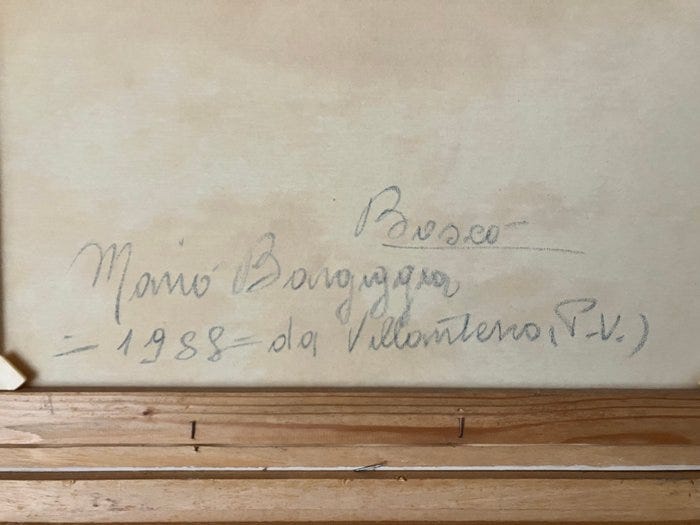 Bosco
Mario Bargiggia
= 1988 = da Villanterio (P.V.)